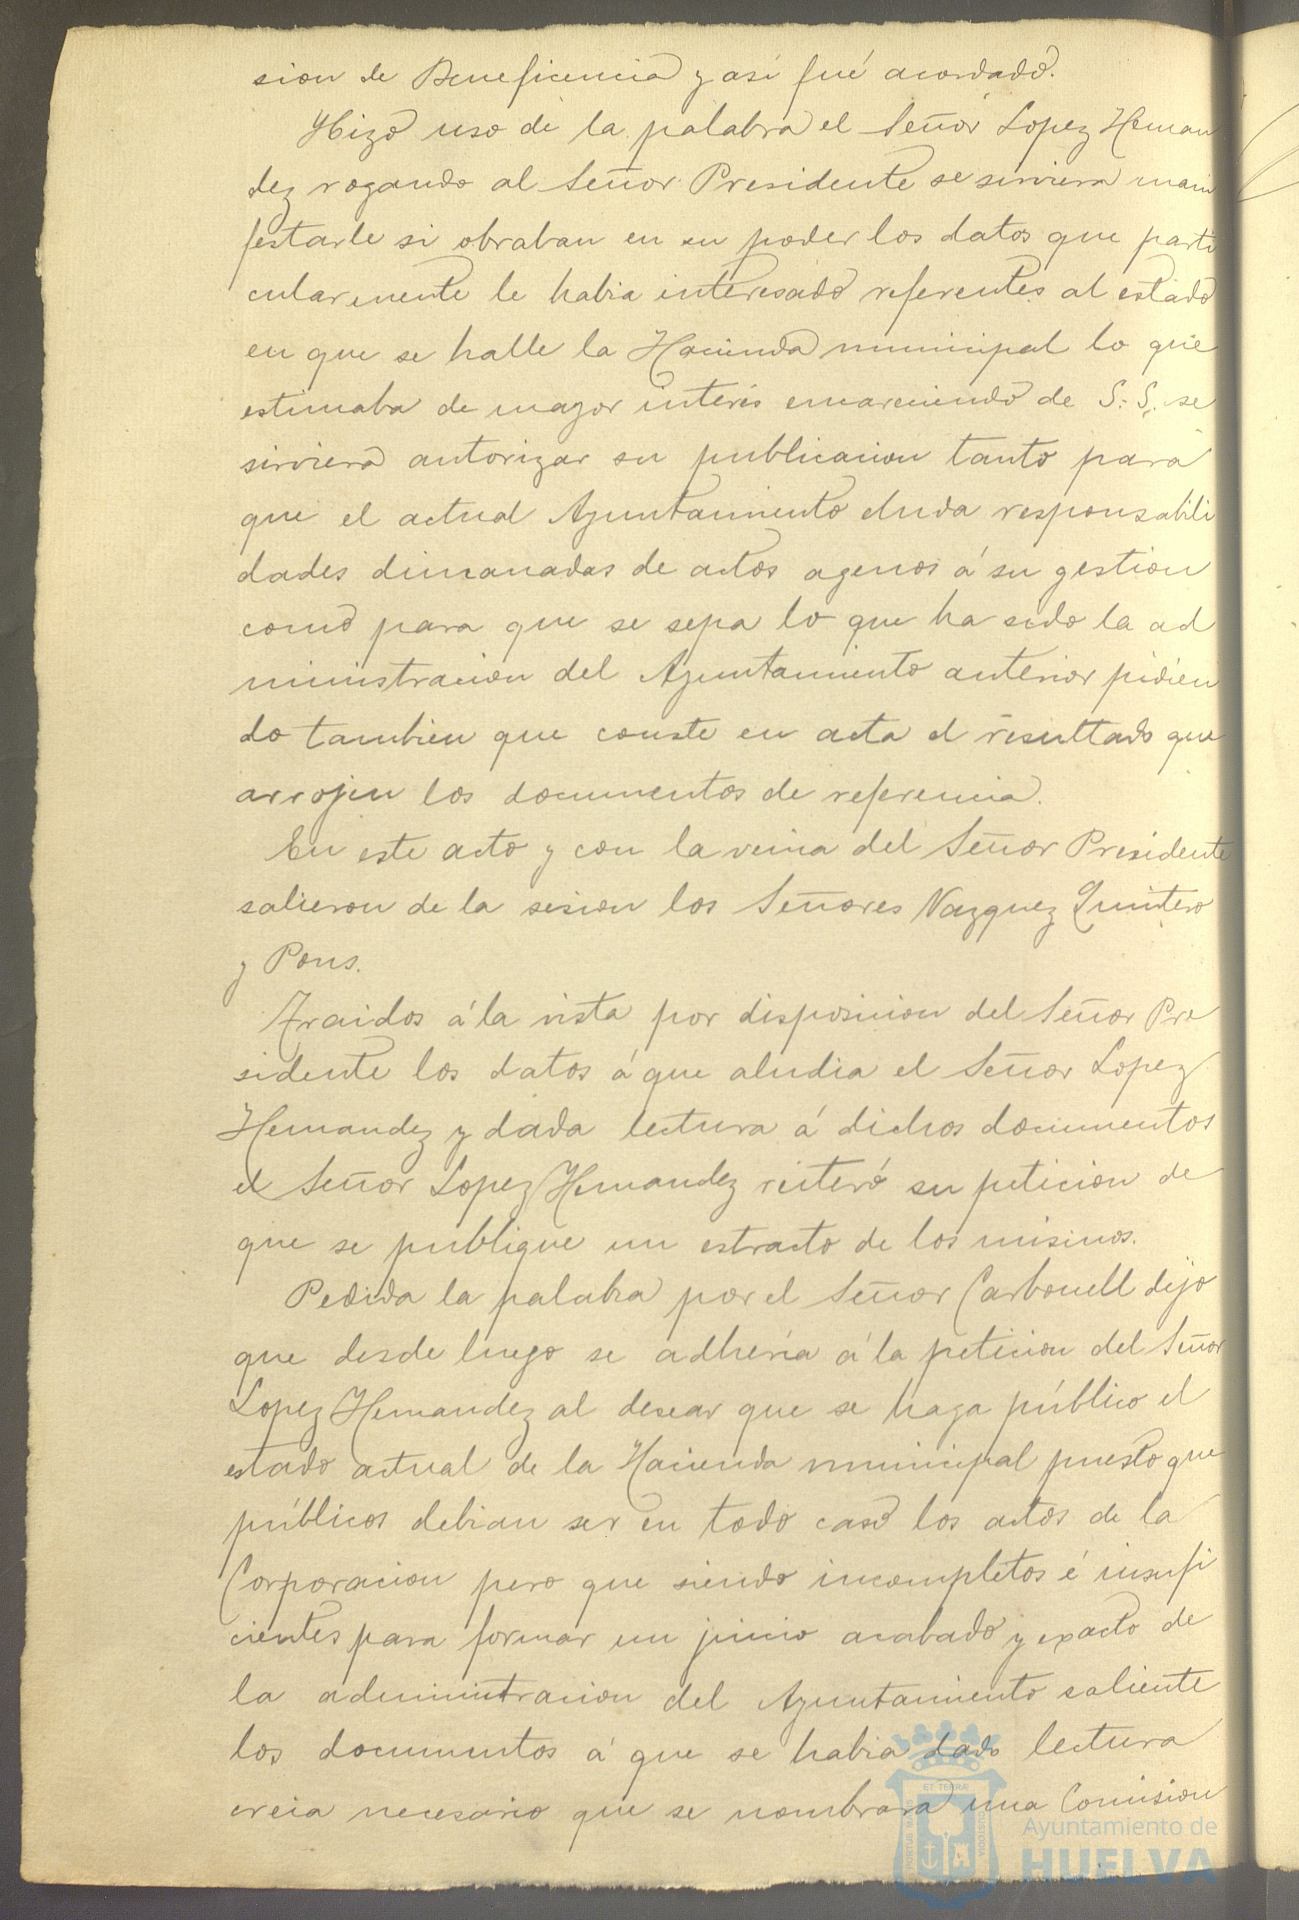 sion de Beneficencia y así fué acordado.
Hizo uso de la palabra el Señor Lopez Hernan
dez rogando al Señor Presidente se sirviera mani
festarle si obraban en su poder los datos que parti
cularmente le habia interesado referentes al estado
en que se halle la Hacienda municipal lo que
estimaba de mayor interés encareciendo de S. S. se
sirviera autorizar su publicacion tanto para
que el actual Ayuntamiento eluda responsabili
dades dimanadas de actos agenos á su gestion
como para que se sepa lo que ha sido la ad
ministracion del Ayuntamiento anterior pidien
do tambien que conste en acta el resultado que
arrojen los documentos de referencia.
En este acto y con la venia del Señor Presidente
salieron de la sesion los Señores Vazquez Quintero
y Pons.
Traidos á la vista por disposicion del Señor Pre
sidente los datos á que aludia el Señor Lopez
Hernandez y dada lectura á dichos documentos
el Señor Lopez Hernandez reiteró su peticion de
que se publique un estracto de los mismos.
Pedida la palabra por el Señor Carbonell dijo
que desde luego se adhería á la peticion del Señor
Lopez Hernandez al desear que se haga público el
estado actual de la Hacienda municipal puesto que
públicos debian ser en todo caso los actos de la
Corporacion pero que siendo incompletos é insufi
cientes para formar un juicio acabado y exacto de
la administracion del Ayuntamiento saliente
los documentos á que se habia dado lectura
creia necesario que se nombrara una Comision
Ayuntamiento de
HUELVA